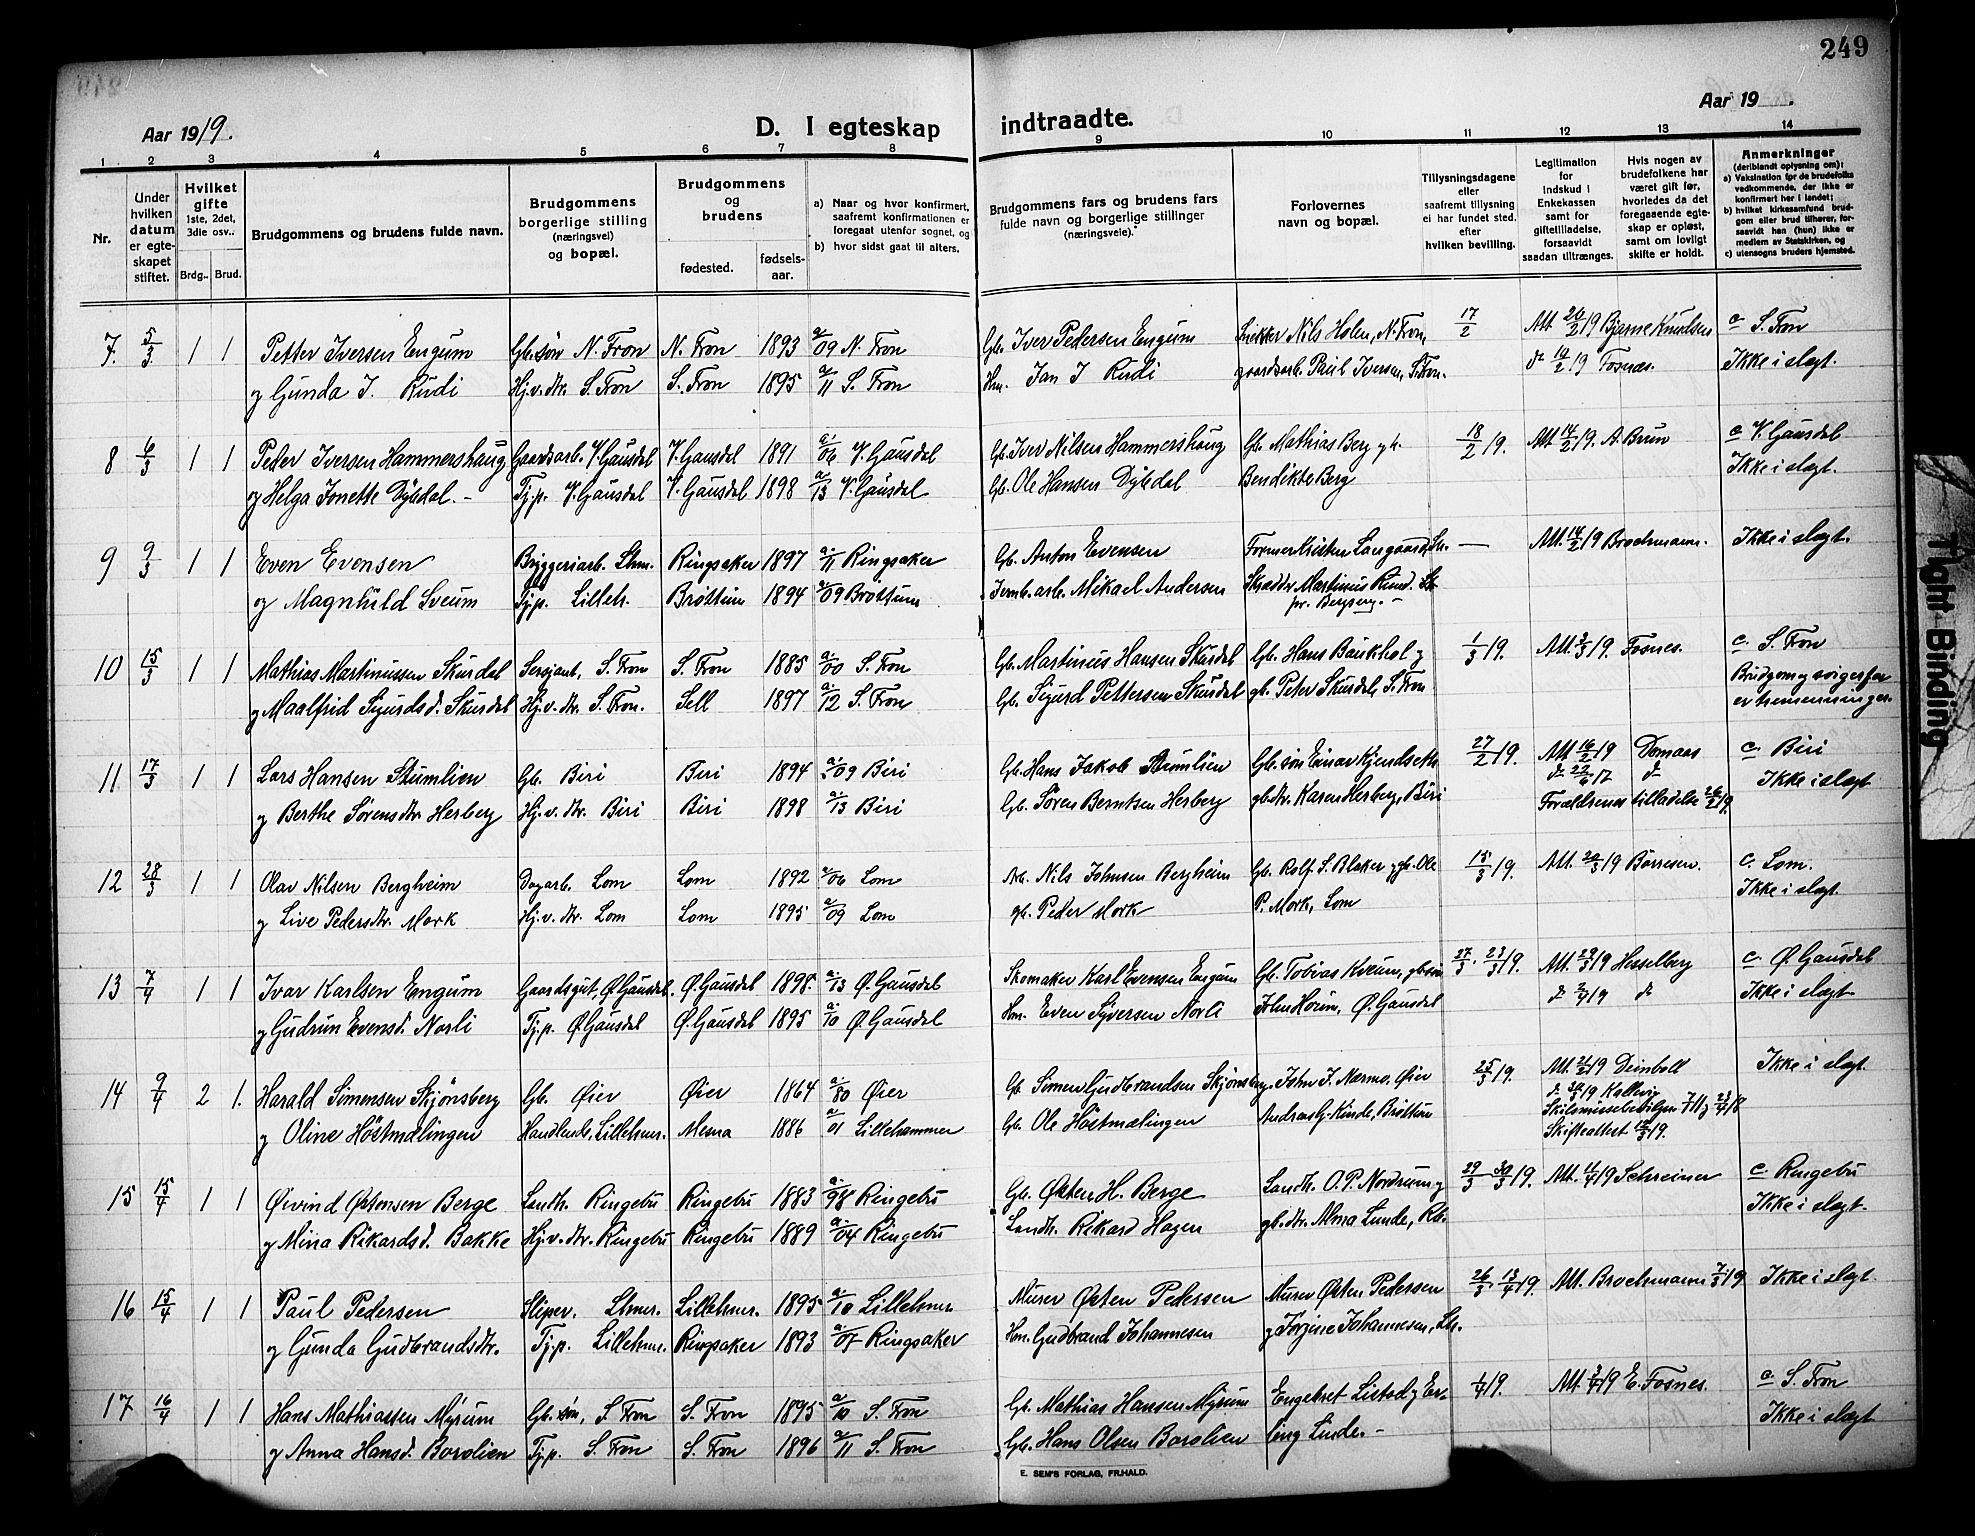 249
Aar 1919.
D. I egteskap
indtraadte.
Aar 19 .
1 2 3 4 5 6 7 8 9 10 11 12 13 14
Nr.
Under hvilken datum er egteskapet stiftet.
Hvilket gifte 1ste, 2det, 3die osv..
Brdg.. Brud.
Brudgommens og brudens fulde navn.
Brudgommens borgerlige stilling (næringsvei) og bopæl.
Brudgommens og brudens
fødested. fødselsaar.
a) Naar og hvor konfirmert, saafremt konfirmationen er foregaat utenfor sognet, og
b) hvor sidst gaat til alters.
Brudgommens fars og brudens fars fulde navn og borgerlige stillinger (næringsveie).
Forlovernes navn og bopæl.
Tillysningsdagene eller saafremt tillysning ei har fundet sted, efter hvilken bevilling.
Legitimation for indskud i Enkekassen samt for giftetilladelse, forsaavidt saadan tiltrænges.
Hvis nogen av brudefolkene har været gift før, hvorledes da det foregaaende egteskap er opløst, samt om lovligt skifte er holdt.
Anmerkninger
(deriblandt oplysning om):
a) Vaksination før de brudefolks vedkommende, der ikke er konfirmert her i landet;
b) hvilket kirkesamfund brudgom eller brud tilhører, forsaavidt han (hun) ikke er medlem av Statskirken, og
c) utensogns bruders hjemsted.
7. 5/3 1 1 Petter Iversen Engum Gb.søn N. Fron N. Fron 1893 a/09 N. Fron Gb. Iver Pedersen Engum Snekker Nils Holen, N. Fron, 17/2 Att. 20/2 19 Bjarne Knudsen c S. Fron
og Gunda J. Rudi Hj.v.dtr. S. Fron S. Fron 1895 a/11 S. Fron Hm. Jan J Rudi gaardsarb. Paul Iversen, S. Fron. do 19/2 19 Fosnæs. Ikke i slegt.
8 6/3 1 1 Peder Iversen Hammershaug Gaardsarb. V. Gausdal V. Gausdal 1891 a/06 V. Gausdal Gb. Iver Nilsen Hammershaug Gb. Mathias Berg og h. 18/2 19. Att. 14/2 19. A. Brun c V. Gausdal
og Helga Jonette Dyledal. - Tj.p. V. Gausdal V. Gausdal 1898 a/13 V. Gausdal Gb. Ole Hansen Dyledal Bendikte Berg Ikke i slegt.
9 9/3 1 1 Even Evensen Bryggeriarb. Lhm. Ringsaker 1897 a/11 Ringsaker Gb. Anton Evensen Former Kristen Langaard, Lh. — Att. 14/2 19 Brochmann. Ikke i slegt.
og Magnhild Sveum Tj.p. Lilleh. Brøttum 1894 a/09 Brøttum Jernb.arb. Mikael Andersen Skrædder Martinius Rund. Lh
pr. Bergseng. -
10 15/3 1 1 Mathias Martinussen Skurdal Sersjant, S. Fron S. Fron 1885 a/00 S. Fron Gb. Martinus Hansen Skurdal Gb. Hans Baukhol og 1/3 19. Att. 3/3 19. Fosnes. c. S. Fron
og Maalfrid Sigurdsd. Skurdal Hj.v.dtr. S. Fron. Sell 1897 a/12 S. Fron Gb. Sigurd Pettersen Skurdal gb. Peter Skurdal, S. Fron Brudgom og svigerfar
er tremenninger.
11 17/3 1 1 Lars Hansen Stumlien Gb. Biri Biri 1894 a/09 Biri Gb. Hans Jakob Stumlien Gb.søn Einar Kjendseth 27/2 19. Att. 16/2 19 Domaas c. Biri
do 22/6 17 do
og Berthe Sørensdtr. Herberg Hj.v.dtr. Biri Biri 1898 a/13 Biri Gb. Søren Berntsen Herberg gb.dtr. Karen Herberg, Biri Forældrenes tilladelse 26/2 19. Ikke i slegt
12 28/3 1 1 Olav Nilsen Bergheim Dagarb. Lom Lom 1892 a/06 Lom Arb. Nils Johnsen Bergheim Gb. Rolf. S. Blaker og gb. Ole 15/3 19. Att. 20/3 19 Børresen. c. Lom.
og Live Pedersdtr. Mork Hj.v.dtr. Lom Lom 1895 a/09 Lom gb. Peder Mork P. Mork, Lom Ikke i slegt.
13 7/4 1 1 Ivar Karlsen Engum Gaardsgut, Ø. Gausdal. Ø. Gausdal 1898 a/13 Ø. Gausdal Skomaker Karl Evensen Engum Gb. Tobias Kveum, gb.søn 27/3. 23/3 19. Att. 29/3 19 Hesselberg c. Ø. Gausdal
og Gudrun Evensd. Norli Tj.p. Ø. Gausdal Ø. Gausdal 1895 a/10 Ø. Gausdal Hm. Even Syversen Norli John Horum, Ø. Gausdal do 2/4 19 do Ikke i slegt
14 9/4 2 1. Harald Simensen Skjønsberg Gb. Øier Øier 1864 a/80 Øier Gb. Simen Gudbrandsen Skjønsberg John J. Narmo, Øier 25/3 19. Att. 21/3 19 Deinboll Ikke i slegt.
do 30/3 19 Kallevig
Skilsmissebevilgen 7/7 11 og 23/4 18
og Oline Høstmælingen Handlende, Lillehmr. Mesna 1886 a/01 Lillehammer Gb. Ole Høstmælingen Andreas G. Kinde, Brøttum Skifteattest 19/3 19.
15 15/4 1 1 Øivind Østensen Berge Landh. Ringebu Ringebu 1883 a/98 Ringebu Gb. Østen H. Berge Landh. O. P. Nordrum og 29/3 30/3 19. Att. 11/4 19 Schreiner c. Ringebu
og Mina Rikardsd. Bakke Hj.v.dtr. Ringebu Ringebu 1889 a/04 Ringebu Landh. Rikard Hagen gb.dtr. Alma Lunde, Rb. Ikke i slegt.
16 15/4 1 1 Paul Pedersen Sliper, Lhmr. Lillehmr. 1895 a/10 Lillehmr. Murer Østen Pedersen Murer Østen Pedersen 26/3. 13/4 19. Att. Brochmann 7/3 19. Ikke i slegt.
og Gunda Gudbrandsdtr. Tj.p. Lillehmr. Ringsaker 1893 a/07 Ringsaker Hm. Gudbrand Johannesen og Jørgine Johannesen, Lh.
17 16/4 1 1 Hans Mathiassen Myrum Gb.søn, S. Fron S. Fron 1895 a/10 S. Fron Gb. Mathias Hansen Myrum Engebret Listad og Er- 1/4 19. Att. 3/4 19 E. Fosnes. c. S. Fron
og Anna Hansd. Borolien Tj.p. S. Fron S. Fron 1896 a/11 S. Fron Gb. Hans Olsen Borolien ling Linde. - Ikke i slegt
E. SEM'S FORLAG, FR.HALD.
Tight Binding